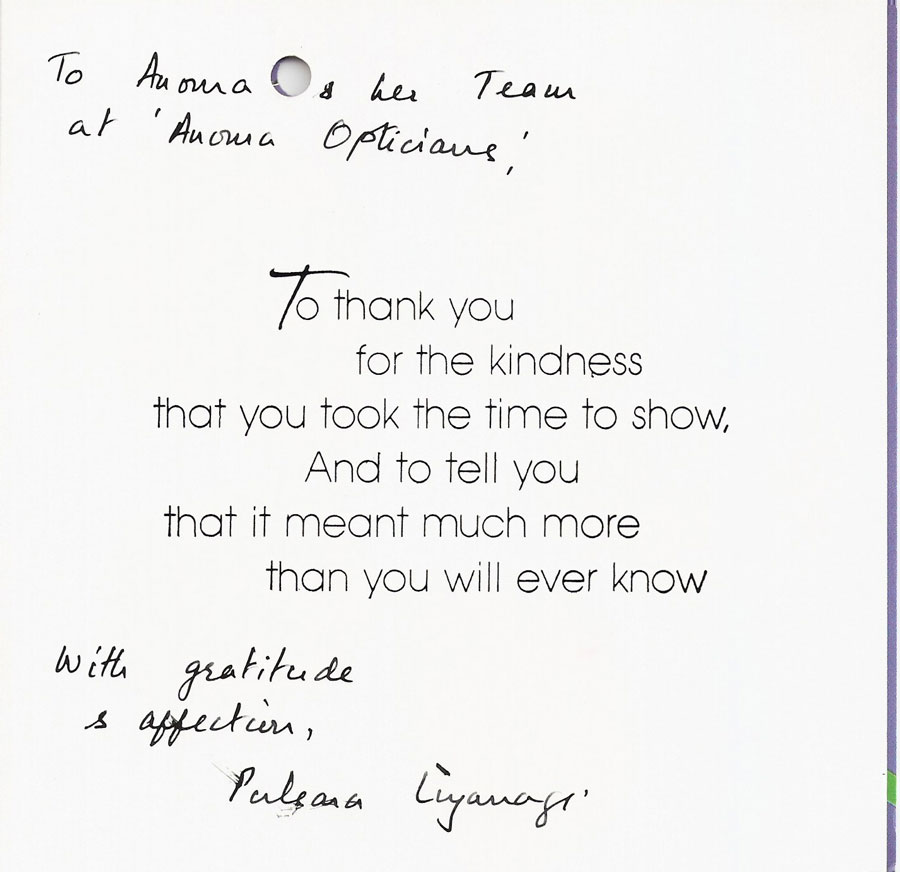 To Anoma & her Team
at 'Anoma Opticians,'
To thank you
for the kindness
that you took the time to show,
And to tell you
that it meant much more
than you will ever know
With gratitude
& affection,
Pulsara Liyanage